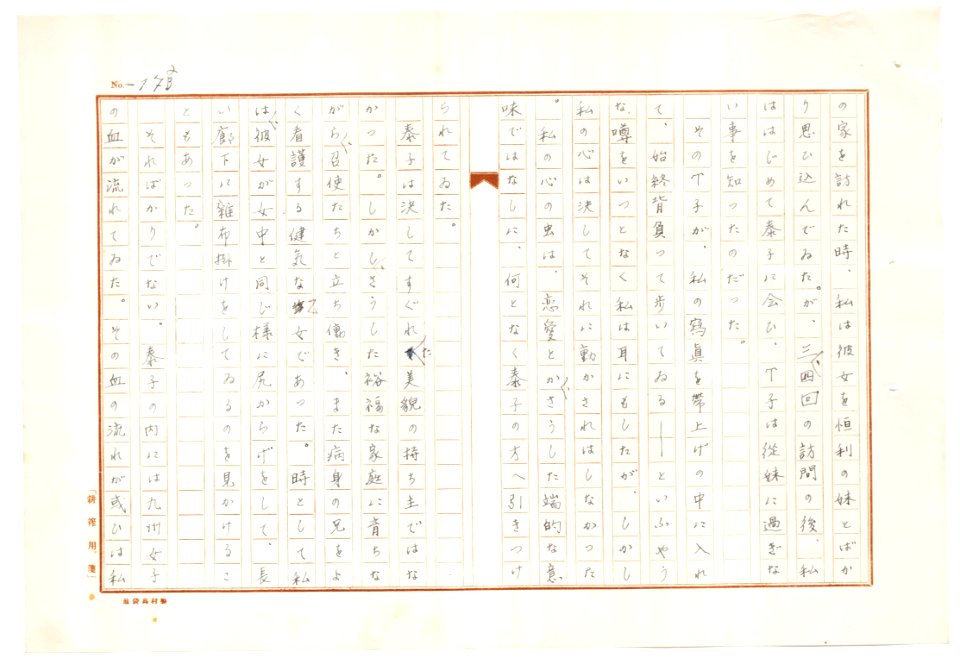 No. 173
の家を訪れた時、私は彼女を恒利の妹とばか
り思ひ込んでゐた。が、三、四回の訪問の後、私
ははじめて泰子に会ひ、T子は従妹に過ぎな
い事を知つたのだつた。
そのT子が、私の寫真を帶上げの中に入れ
て、始終背負つて歩いてゐる――といふやう
な、噂をいつとなく私は耳にもしたが、しかし
私の心は決してそれに動かされはしなかつた
。私の心の虫は、恋愛とか、さうした端的な意
味ではなしに、何となく泰子の方へ引きつけ
られてゐた。
泰子は決してすぐれた美貌の持ち主ではな
かつた。しかし、さうした裕福な家庭に育ちな
がら、召使たちと立ち働き、また病身の兄をよ
く看護する健気な女であつた。時として私
は、彼女が女中と同じ様に尻からげをして、長
い廊下に雑布掛けをしてゐるのを見かけるこ
ともあつた。
そればかりでない。泰子の内には九州女子
の血が流れてゐた。その血の流れが或ひは私